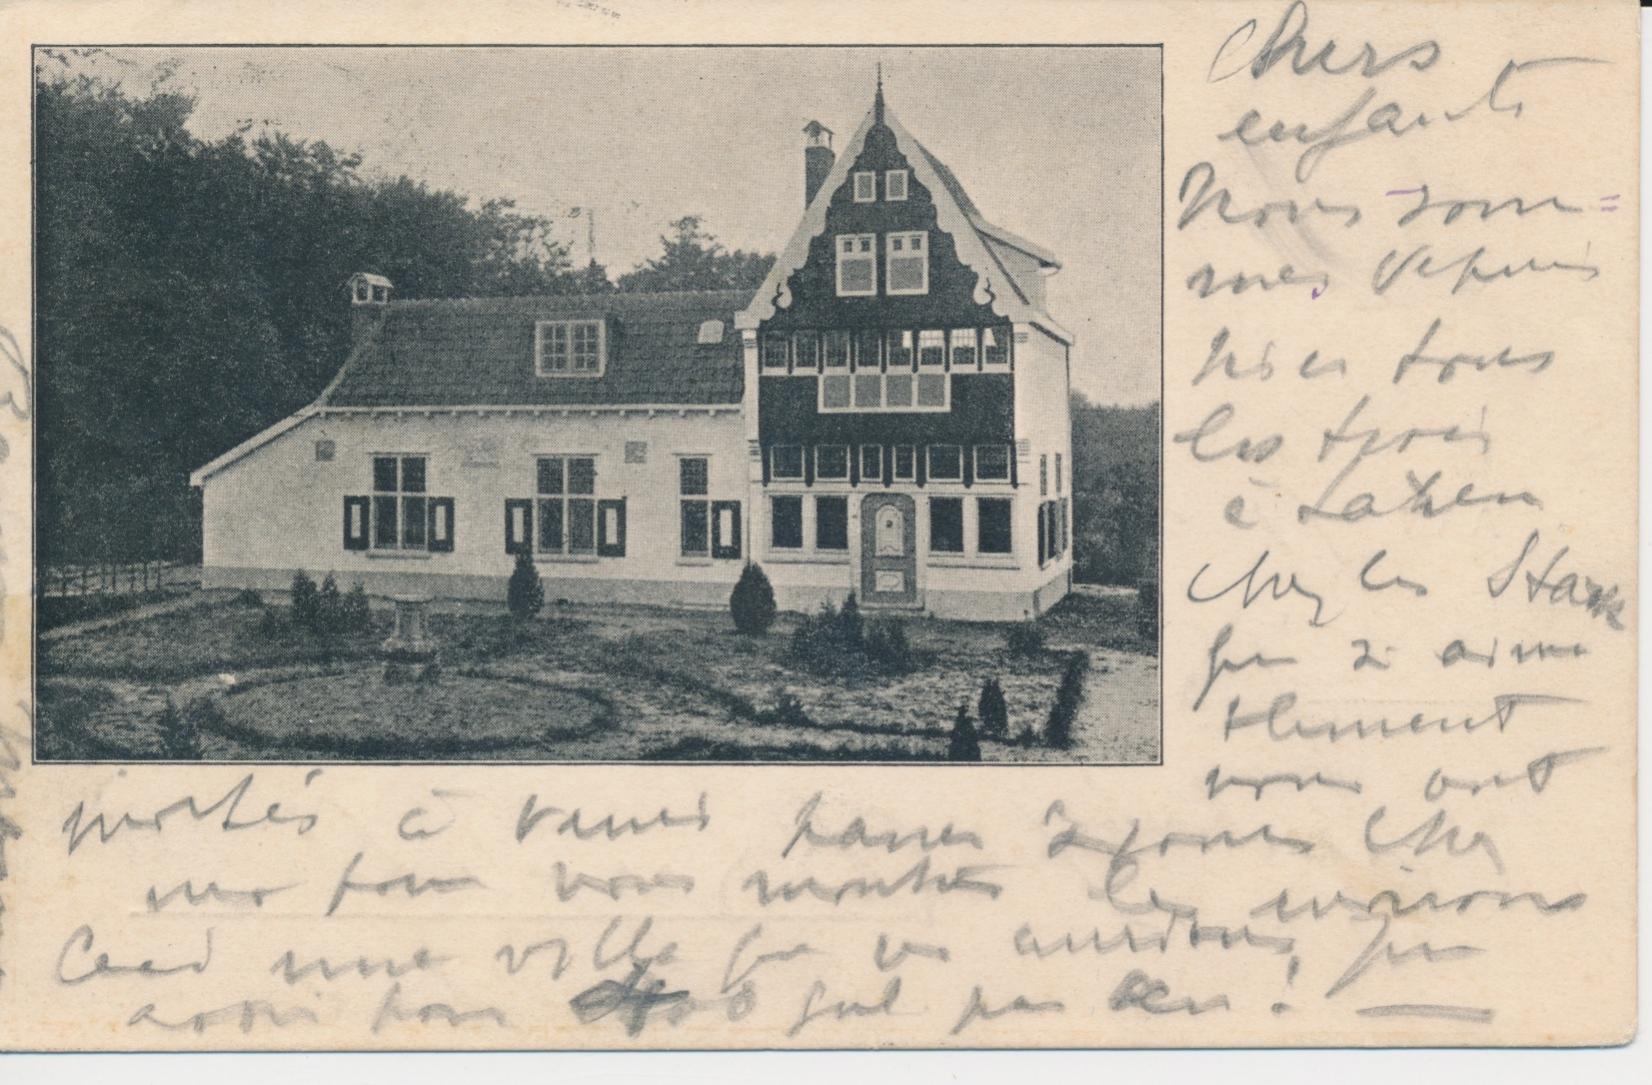 Chers
enfants
Nous som=
mes depuis
hier tous
les trois
à Laren
chez les Stark
qui si aima
blement
nous ont
invités à venir passer 2 jours chez
eux pour nous montrer les environs
Ceci une villa que nous aurions pu
avoir pour 800 gul par an! —